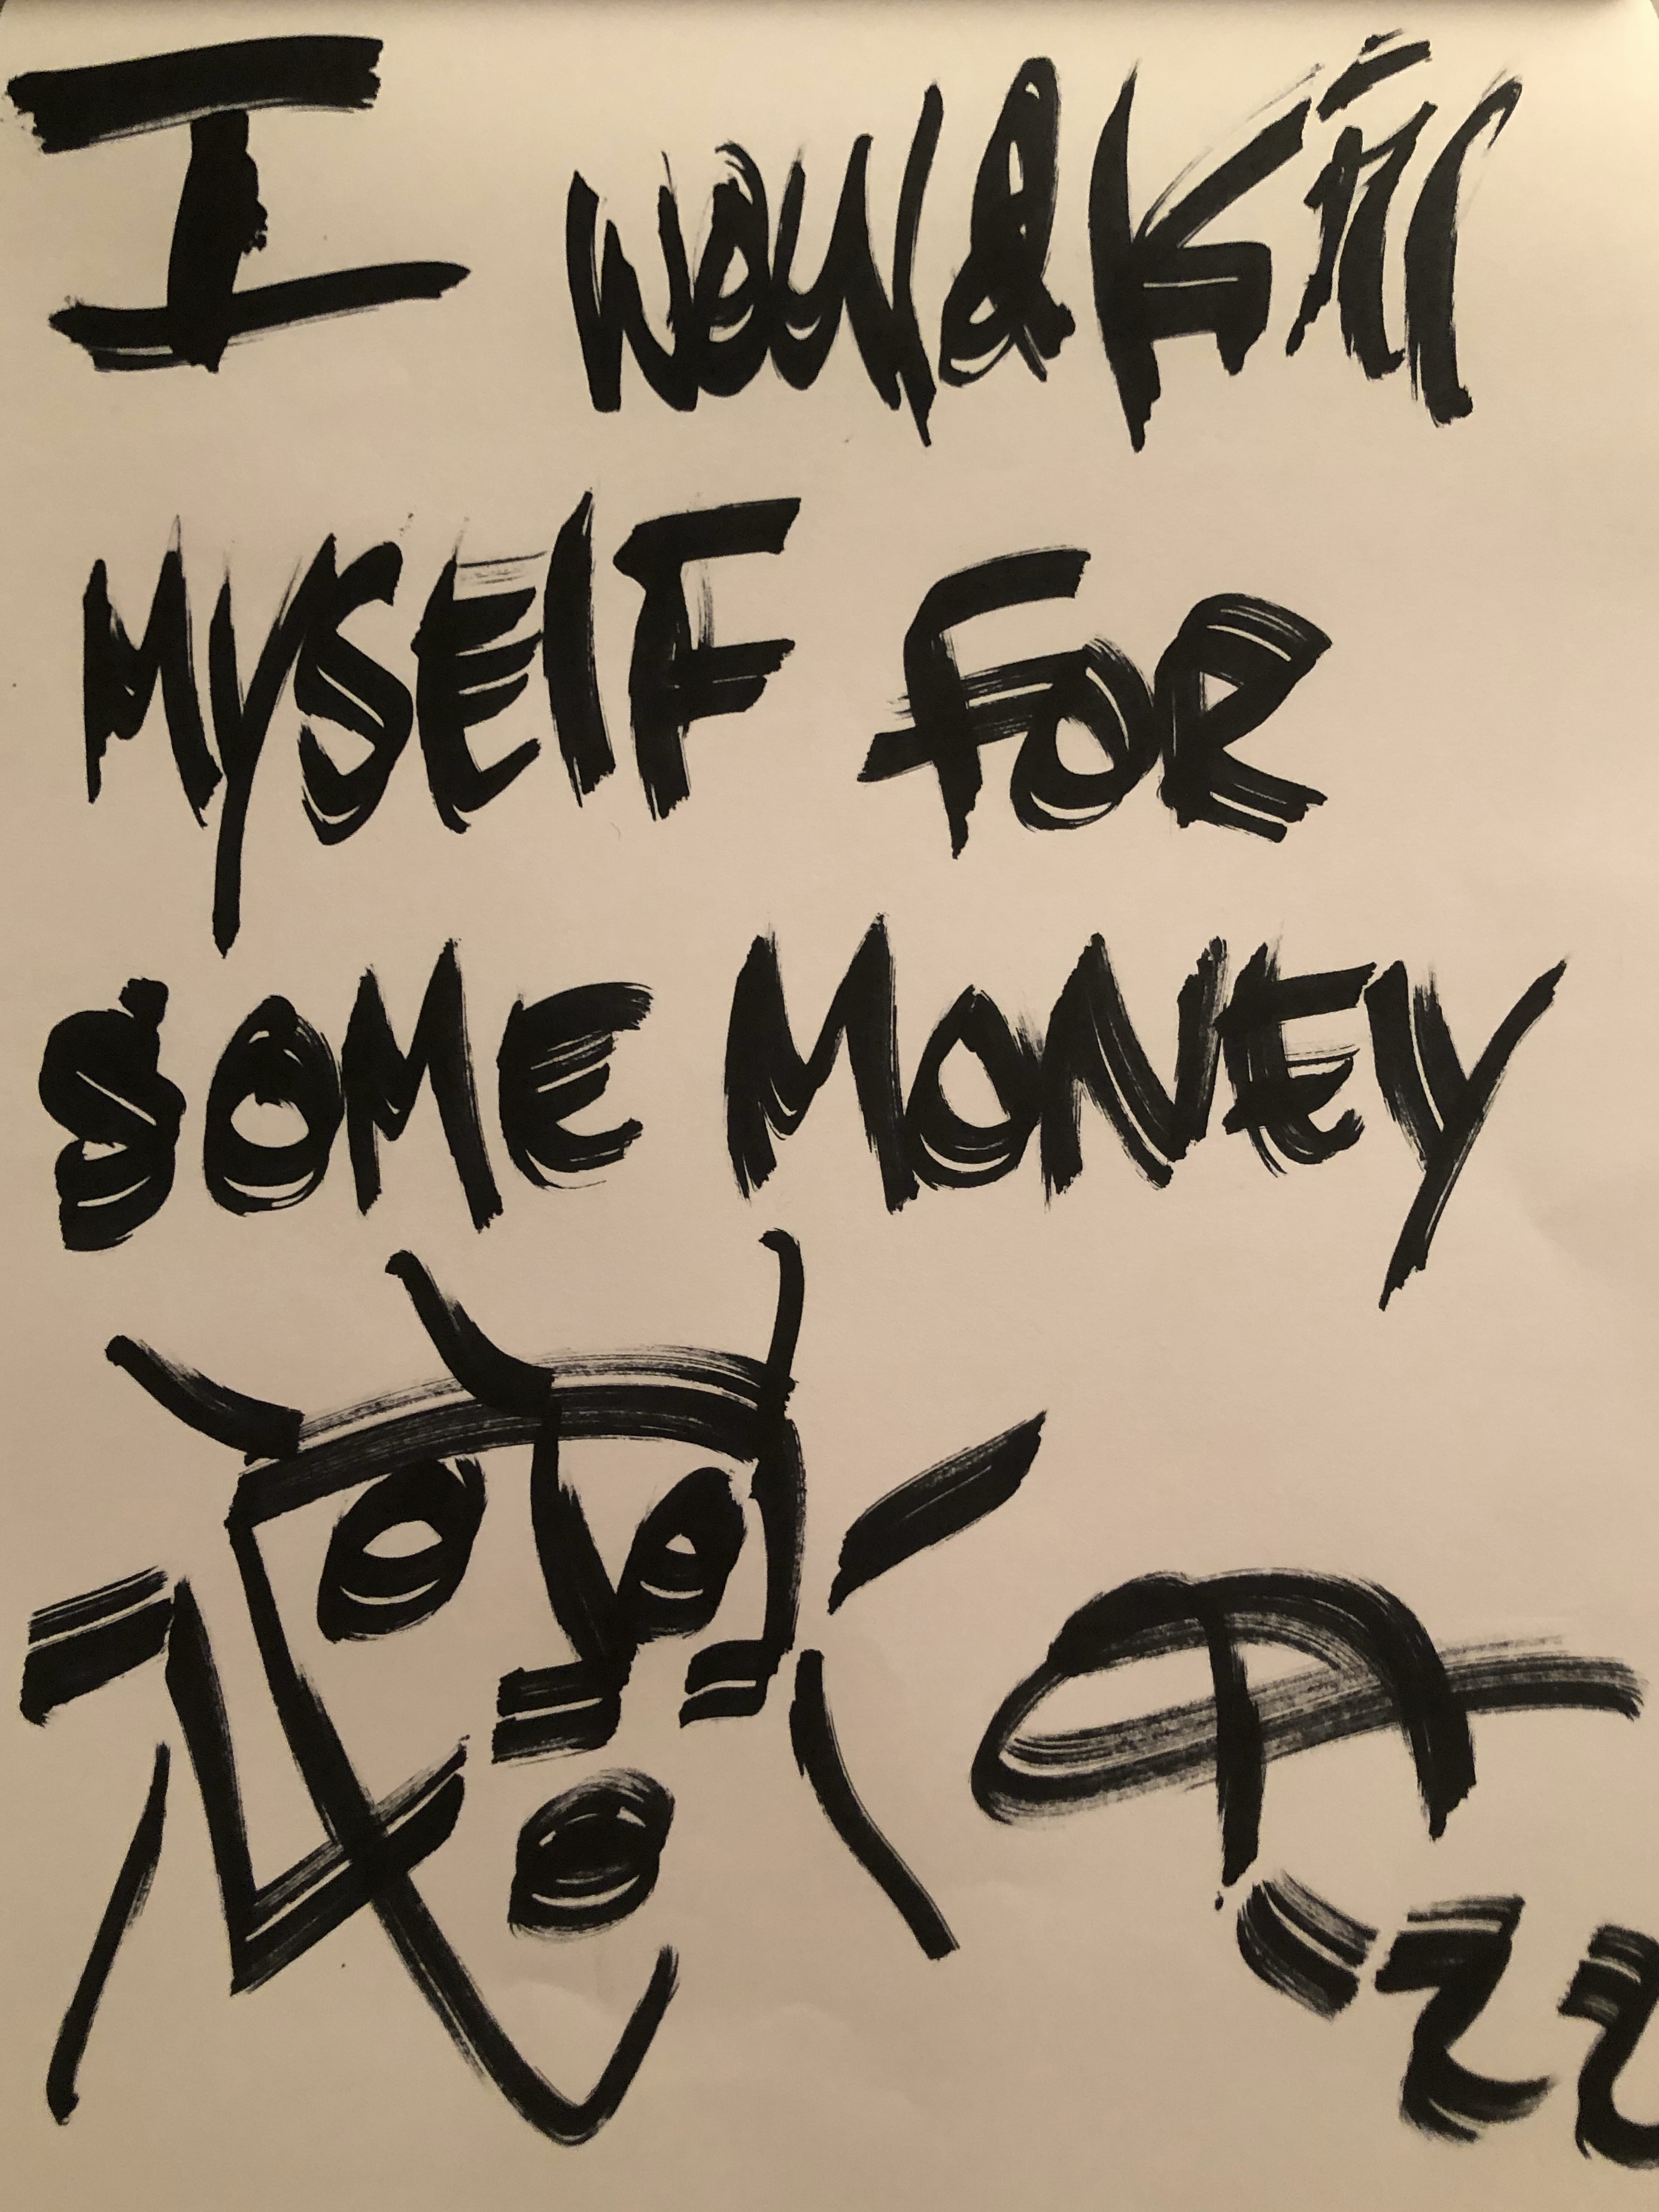 I would Kill
MYSElF FOR
SOME MONEY
22